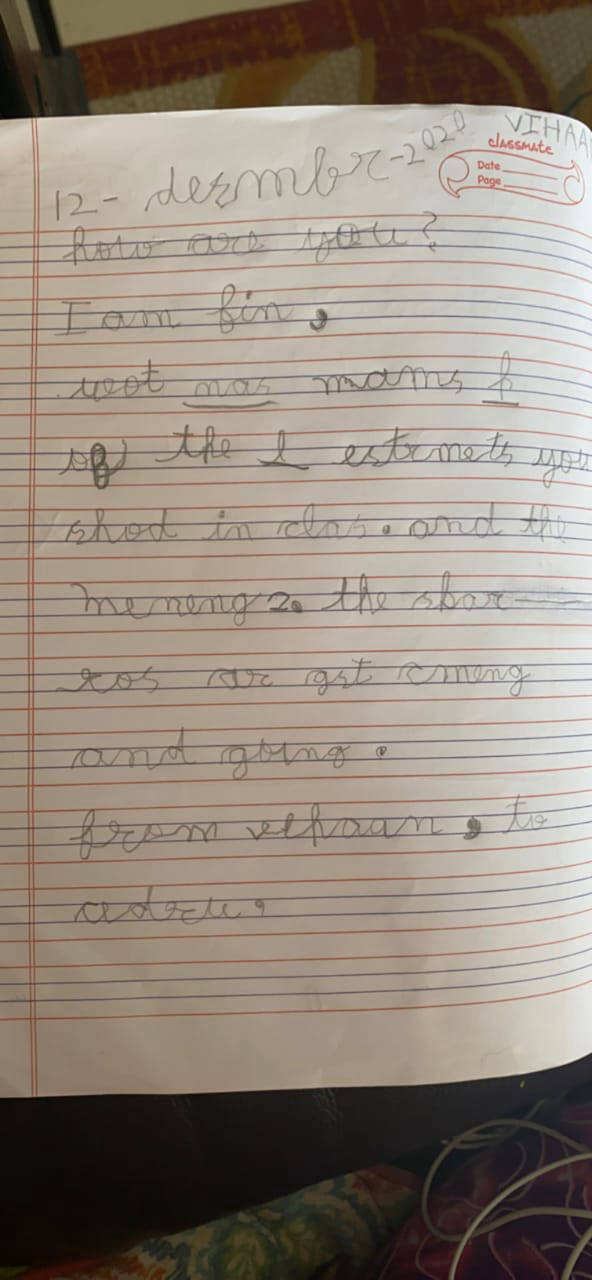 VIHAA
classmate
Date
Page
12 - dezmbr - 2020
how are you?
I am fin,
wot nas mams f
of the l estrmets you
shod in clas. and the
meneng 2. the sbar-
ros ar gst cmeng
and going.
from vehaan, to